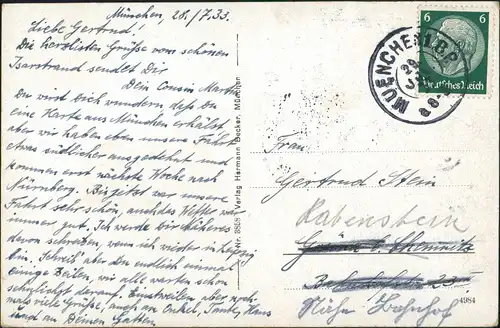 München, 28./7.33.
Liebe Gertrud!
Die herzlichsten Grüße vom schönen
Isarstrand sendet Dir
Dein Cousin Martin
Du wirst Dich wundern, daß Du
eine Karte aus München erhälst
aber wir haben eben unsere Fahrt
etwas südlicher ausgedehnt und
kommen erst nächste Woche nach
Nürnberg. Bis jetzt war unsere
Fahrt sehr schön, auch das Wetter war
immer gut. Ich werde Dir näheres
davon schreiben, wenn ich wieder in Leipzig
bin. Schreib' aber Du endlich einmal
einige Zeilen, wir alle warten schon
schnlichst darauf. Einstweilen aber noch-
mals viele Grüße, auch an Onkel, Tante, Hans
und an Deinen Gatten.
Nr. Verlag Hermann Becker, München
MUENCHEN
6 6
Deutsches Reich
Frau
Gertrud Stein
Rabenstein
Chemnitz
23
Nähe Bahnhof
4984